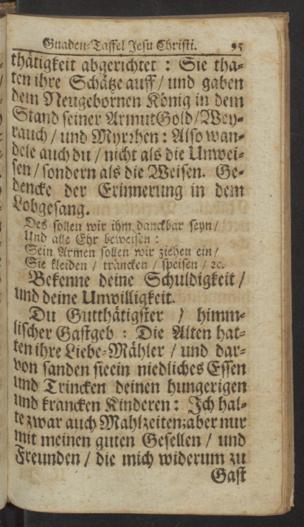 Gnaden-Taffel Jesu Christi. 95
thätigkeit abgerichtet : Sie tha-
ten ihre Schätze auff / und gaben
dem Neugebornen König in dem
Stand seiner Armut Gold / Wey-
rauch / und Myrrhen : Also wan-
dele auch du / nicht als die Unwei-
sen / sondern als die Weisen. Ge-
dencke der Erinnerung in dem
Lobgesang.
Des sollen wir ihm danckbar seyn /
Und alle Ehr beweisen :
Sein Armen sollen wir ziehen ein /
Sie kleiden / träncken / speisen / ꝛc.
Bekenne deine Schuldigkeit /
und deine Unwilligkeit.
Du Gutthätigster / himm-
lischer Gastgeb : Die Alten hat-
ten ihre Liebe-Mähler / und dar-
von sanden sie ein niedliches Essen
und Trincken deinen hungerigen
und krancken Kinderen : Ich hal-
te zwar auch Mahlzeiten; aber nur
mit meinen guten Gesellen / und
Freunden / die mich widerum zu
Gast